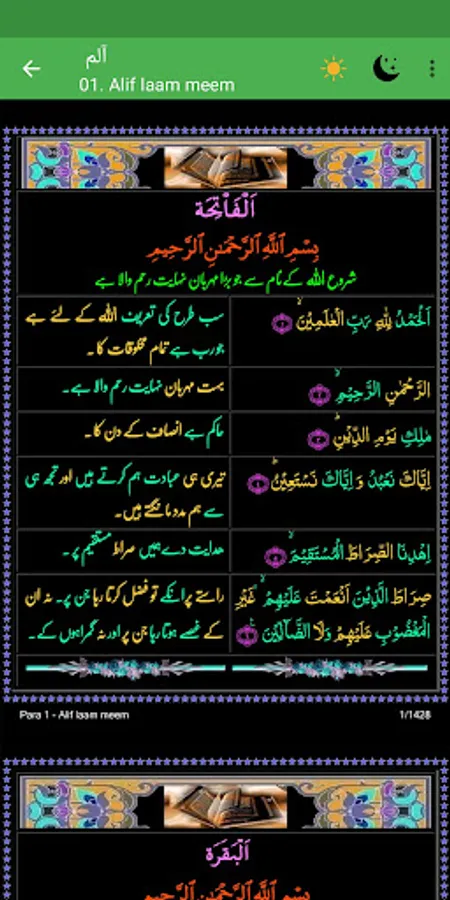 آلم
01. Alif laam meem
اَلْفَاتِحَة
بِسْمِ اللّٰهِ الرَّحْمٰنِ الرَّحِيْمِ
شروع اللہ کے نام سے جو بڑا مہربان نہایت رحم والا ہے
اَلْحَمْدُ لِلّٰهِ رَبِّ الْعٰلَمِيْنَ ۙ﴿۱﴾
سب طرح کی تعریف اللہ کے لئے ہے
جو رب ہے تمام مخلوقات کا۔
الرَّحْمٰنِ الرَّحِيْمِ ۙ﴿۲﴾
بہت مہربان نہایت رحم والا ہے۔
مٰلِكِ يَوْمِ الدِّيْنِ ؕ﴿۳﴾
حاکم ہے انصاف کے دن کا۔
اِيَّاكَ نَعْبُدُ وَ اِيَّاكَ نَسْتَعِيْنُ ؕ﴿۴﴾
تیری ہی عبادت ہم کرتے ہیں اور تجھ ہی
سے ہم مدد مانگتے ہیں۔
اِهْدِنَا الصِّرَاطَ الْمُسْتَقِيْمَ ۙ﴿۵﴾
ہدایت دے ہمیں صراط مستقیم پر۔
صِرَاطَ الَّذِيْنَ اَنْعَمْتَ عَلَيْهِمْ ۙ غَيْرِ
الْمَغْضُوْبِ عَلَيْهِمْ وَلَا الضَّآلِّيْنَ ﴿۶﴾
راستے پر انکے تو فضل کرتا رہا جن پر۔ نہ ان
کے غصے ہوتا رہا جن پر اور نہ گمراہوں کے۔
Para 1 - Alif laam meem
1/1428
اَلْبَقَرَة
بِسْمِ اللّٰهِ الرَّحْمٰنِ الرَّحِيْمِ